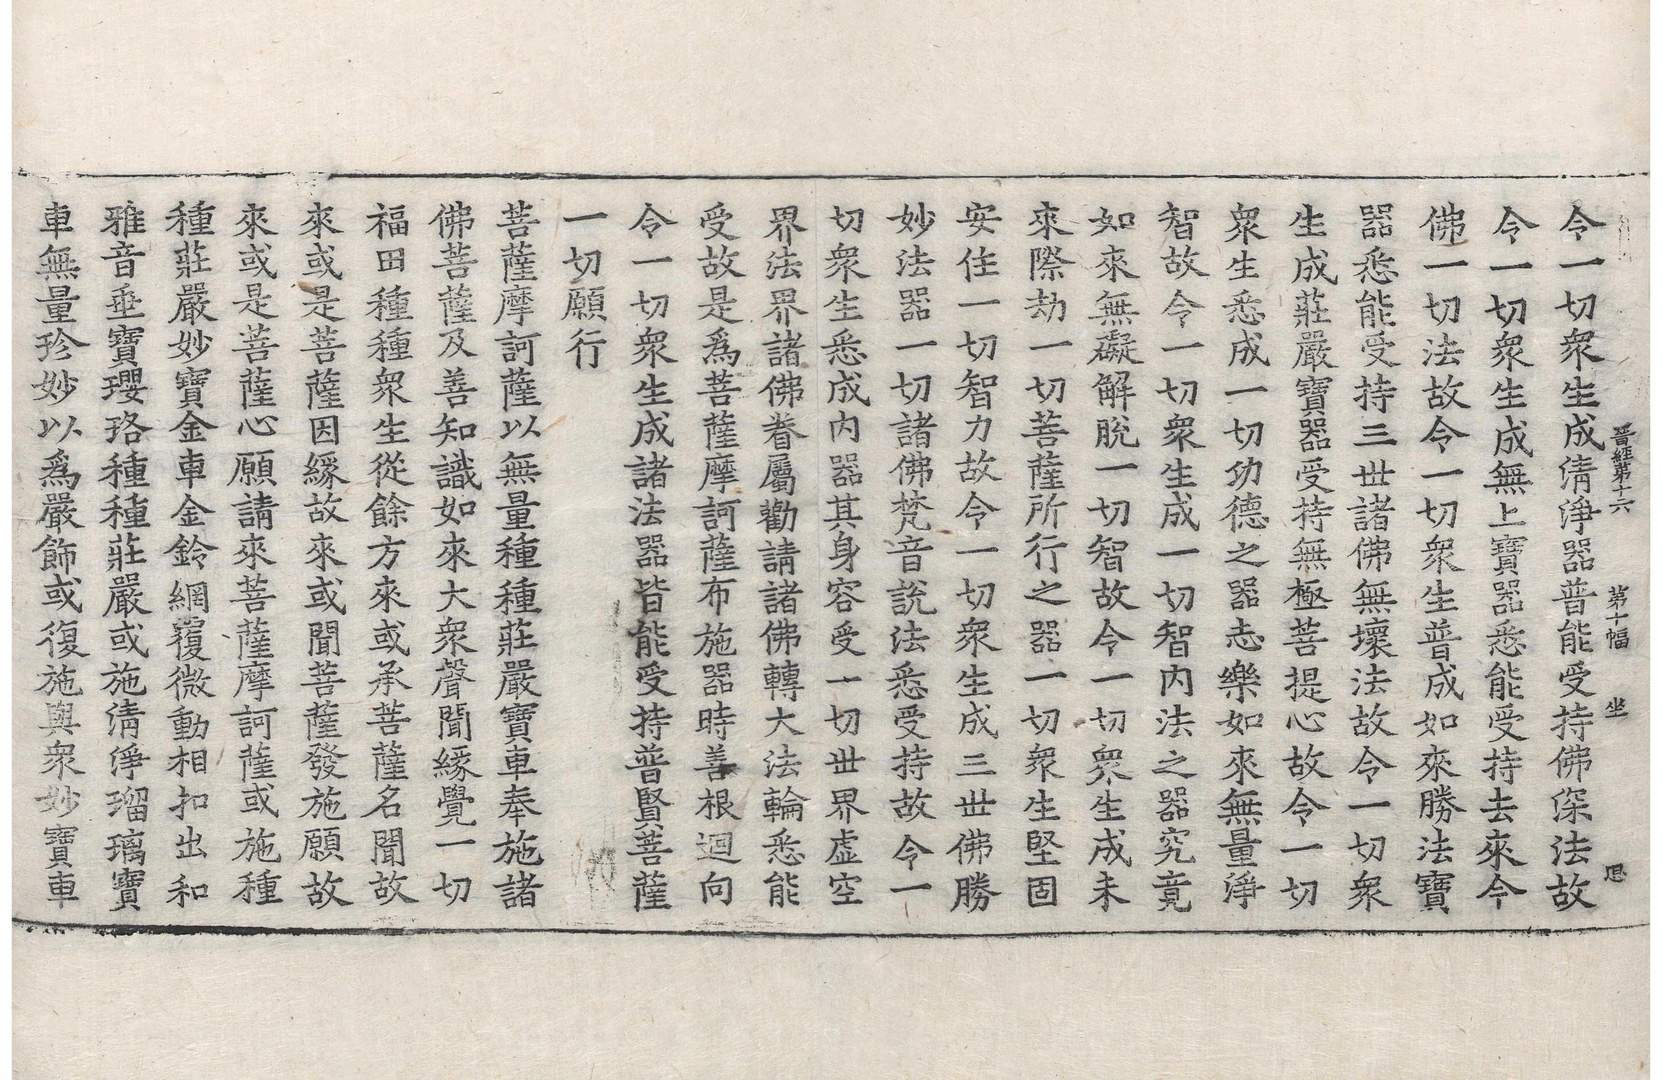 晉經第十六 第十幅 坐 思
令一切衆生成清淨器普能受持佛深法故
令一切衆生成無上寶器悉能受持去來今
佛一切法故令一切衆生普成如來勝法寶
器悉能受持三世諸佛無壞法故令一切衆
生成莊嚴寶器受持無極菩提心故令一切
衆生悉成一切功德之器志樂如來無量淨
智故令一切衆生成一切智內法之器究竟
如來無礙解脫一切智故令一切衆生成未
來際劫一切菩薩所行之器一切衆生堅固
安住一切智力故令一切衆生成三世佛勝
妙法器一切諸佛梵音說法悉受持故令一
切衆生悉成內器其身容受一切世界虛空
界法界諸佛眷屬勸請諸佛轉大法輪悉能
受故是爲菩薩摩訶薩布施器時善根迴向
令一切衆生成諸法器皆能受持普賢菩薩
一切願行
菩薩摩訶薩以無量種種莊嚴寶車奉施諸
佛菩薩及善知識如來大衆聲聞緣覺一切
福田種種衆生從餘方來或承菩薩名聞故
來或是菩薩因緣故來或聞菩薩發施願故
來或是菩薩心願請來菩薩摩訶薩或施種
種莊嚴妙寶金車金鈴網覆微動相扣出和
雅音垂寶瓔珞種種莊嚴或施清淨瑠璃寶
車無量珍妙以爲嚴飾或復施與衆妙寶車